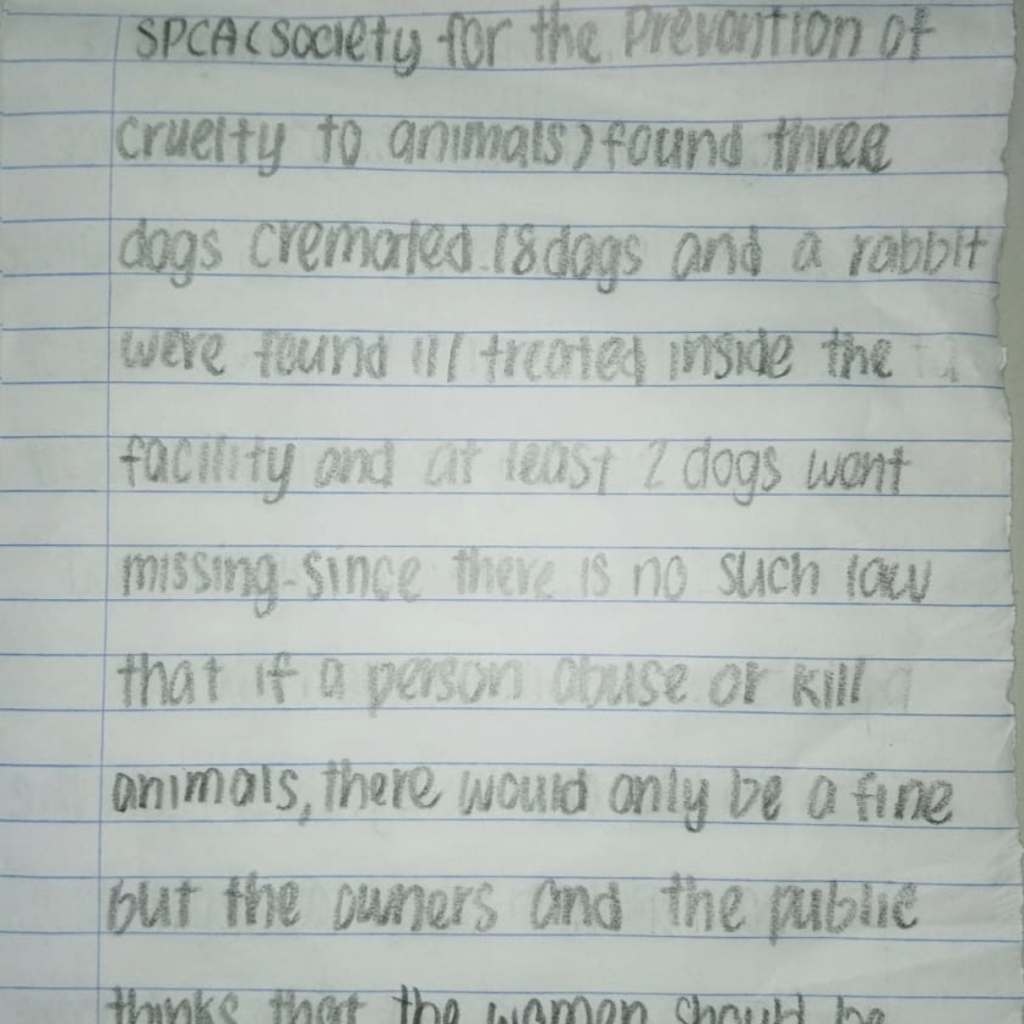 SPCA(society for the Prevantion of
cruelty to animals) found three
dogs cremated. 18 dogs and a rabbit
were found ill treated inside the
facility and at least 2 dogs want
missing. Since there is no such law
that if a person abuse or kill
animals, there would only be a fine
but the owners and the public
thinks that the women should be